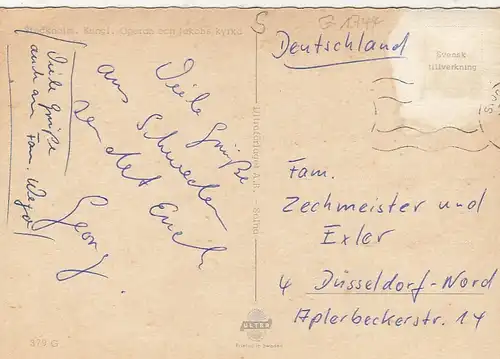 Stockholm. Kungl. Operan och Jakobs kyrka
Viele Grüße
aus Schweden
sendet Euch
Georg.
Viele Grüße
auch an
Fam.
Ultraförlaget A.B. - Solna
579 G
G 1744
Deutschland
Svensk
tillverkning
Fam.
Zechmeister und
Exler
4 Düsseldorf-Nord
Aplerbeckerstr. 14
ULTRA
Printed in Sweden